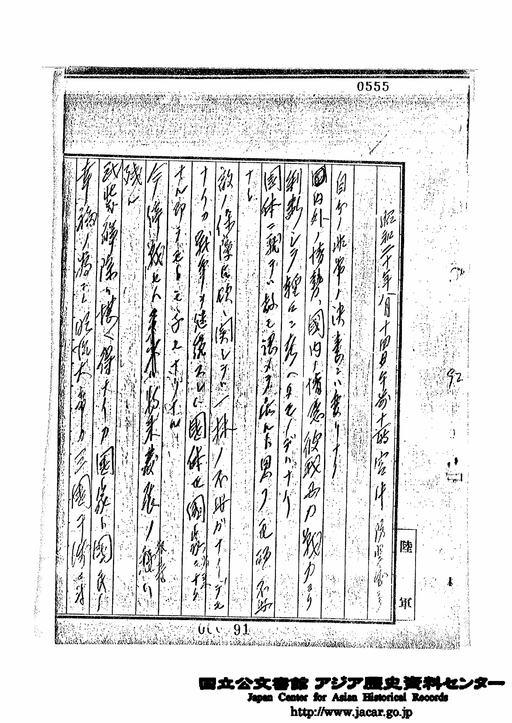 0555
昭和二十年八月十四日午前十時 宮中防空室ニテ
自分ノ非常ノ決意ニハ変リナイ
内外ノ情勢、国内ノ情態彼我国力戦力ヨリ
判断シテ軽々ニ考ヘタモノデハナイ
国体ニ就テハ敵モ認メテ居ルト思フ毛頭不安
ナシ
敵ノ保障占領ニ関シテハ一抹ノ不安ガナイデモ
ナイガ戦争ヲ継続スレバ国体モ
今停戦セハ将来発展ノ根基ハ
残ル
武装解除ハ堪ヘ得ナイガ国家ト国民ノ
幸福ノ為ニハ明治大帝ガ三国干渉
陸軍
92
91
国立公文書館 アジア歴史資料センター
Japan Center for Asian Historical Records
http://www.jacar.go.jp